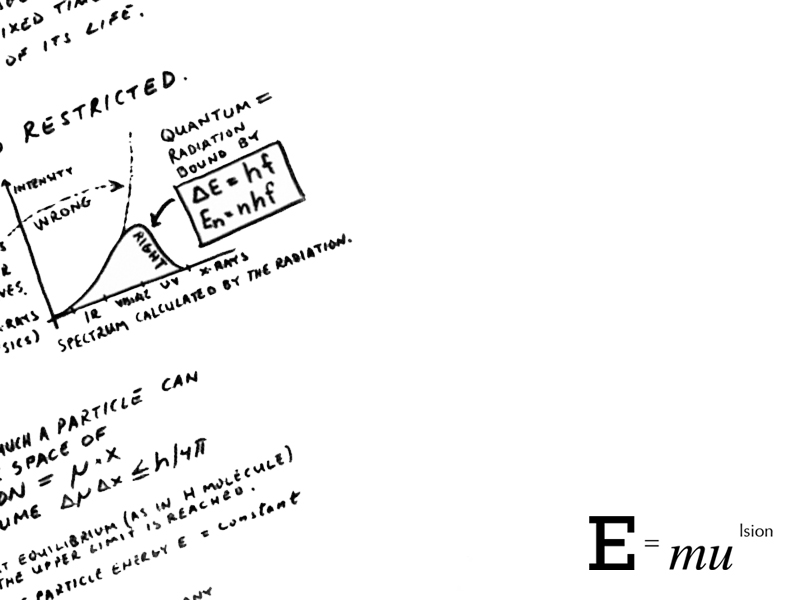 IXED TIM
OF ITS LIFE.
RESTRICTED.
QUANTUM =
RADIATION
BOUND BY
ΔE = hf
En = nhf
INTENSITY
WRONG
RIGHT
IR VISIBLE UV X-RAYS
SPECTRUM CALCULATED BY THE RADIATION.
VES.
-RAYS
SICS)
MUCH A PARTICLE CAN
SPACE OF
ON = μ·x
UME Δμ Δx ≤ h/4π
T EQUILIBRIUM (AS IN H MOLÉCULE)
THE UPPER LIMIT IS REACHED.
PARTICLE ENERGY E = constant
ANY
E = mu lsion